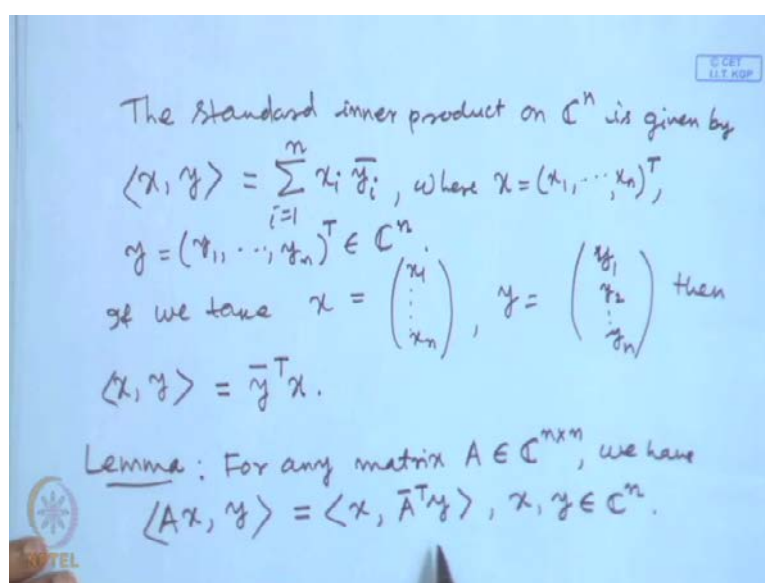 © CET
I.I.T. KGP
The standard inner product on ℂⁿ is given by
⟨x, y⟩ = ∑ᵢ₌₁ⁿ xᵢ ȳᵢ, where x = (x₁, ..., xₙ)ᵀ,
y = (y₁, ..., yₙ)ᵀ ∈ ℂⁿ.
If we take x = (x₁ ⋮ xₙ), y = (y₁ y₂ ⋮ yₙ) then
⟨x, y⟩ = ȳᵀx.
Lemma : For any matrix A ∈ ℂⁿˣⁿ, we have
⟨Ax, y⟩ = ⟨x, Āᵀy⟩, x, y ∈ ℂⁿ.
NPTEL